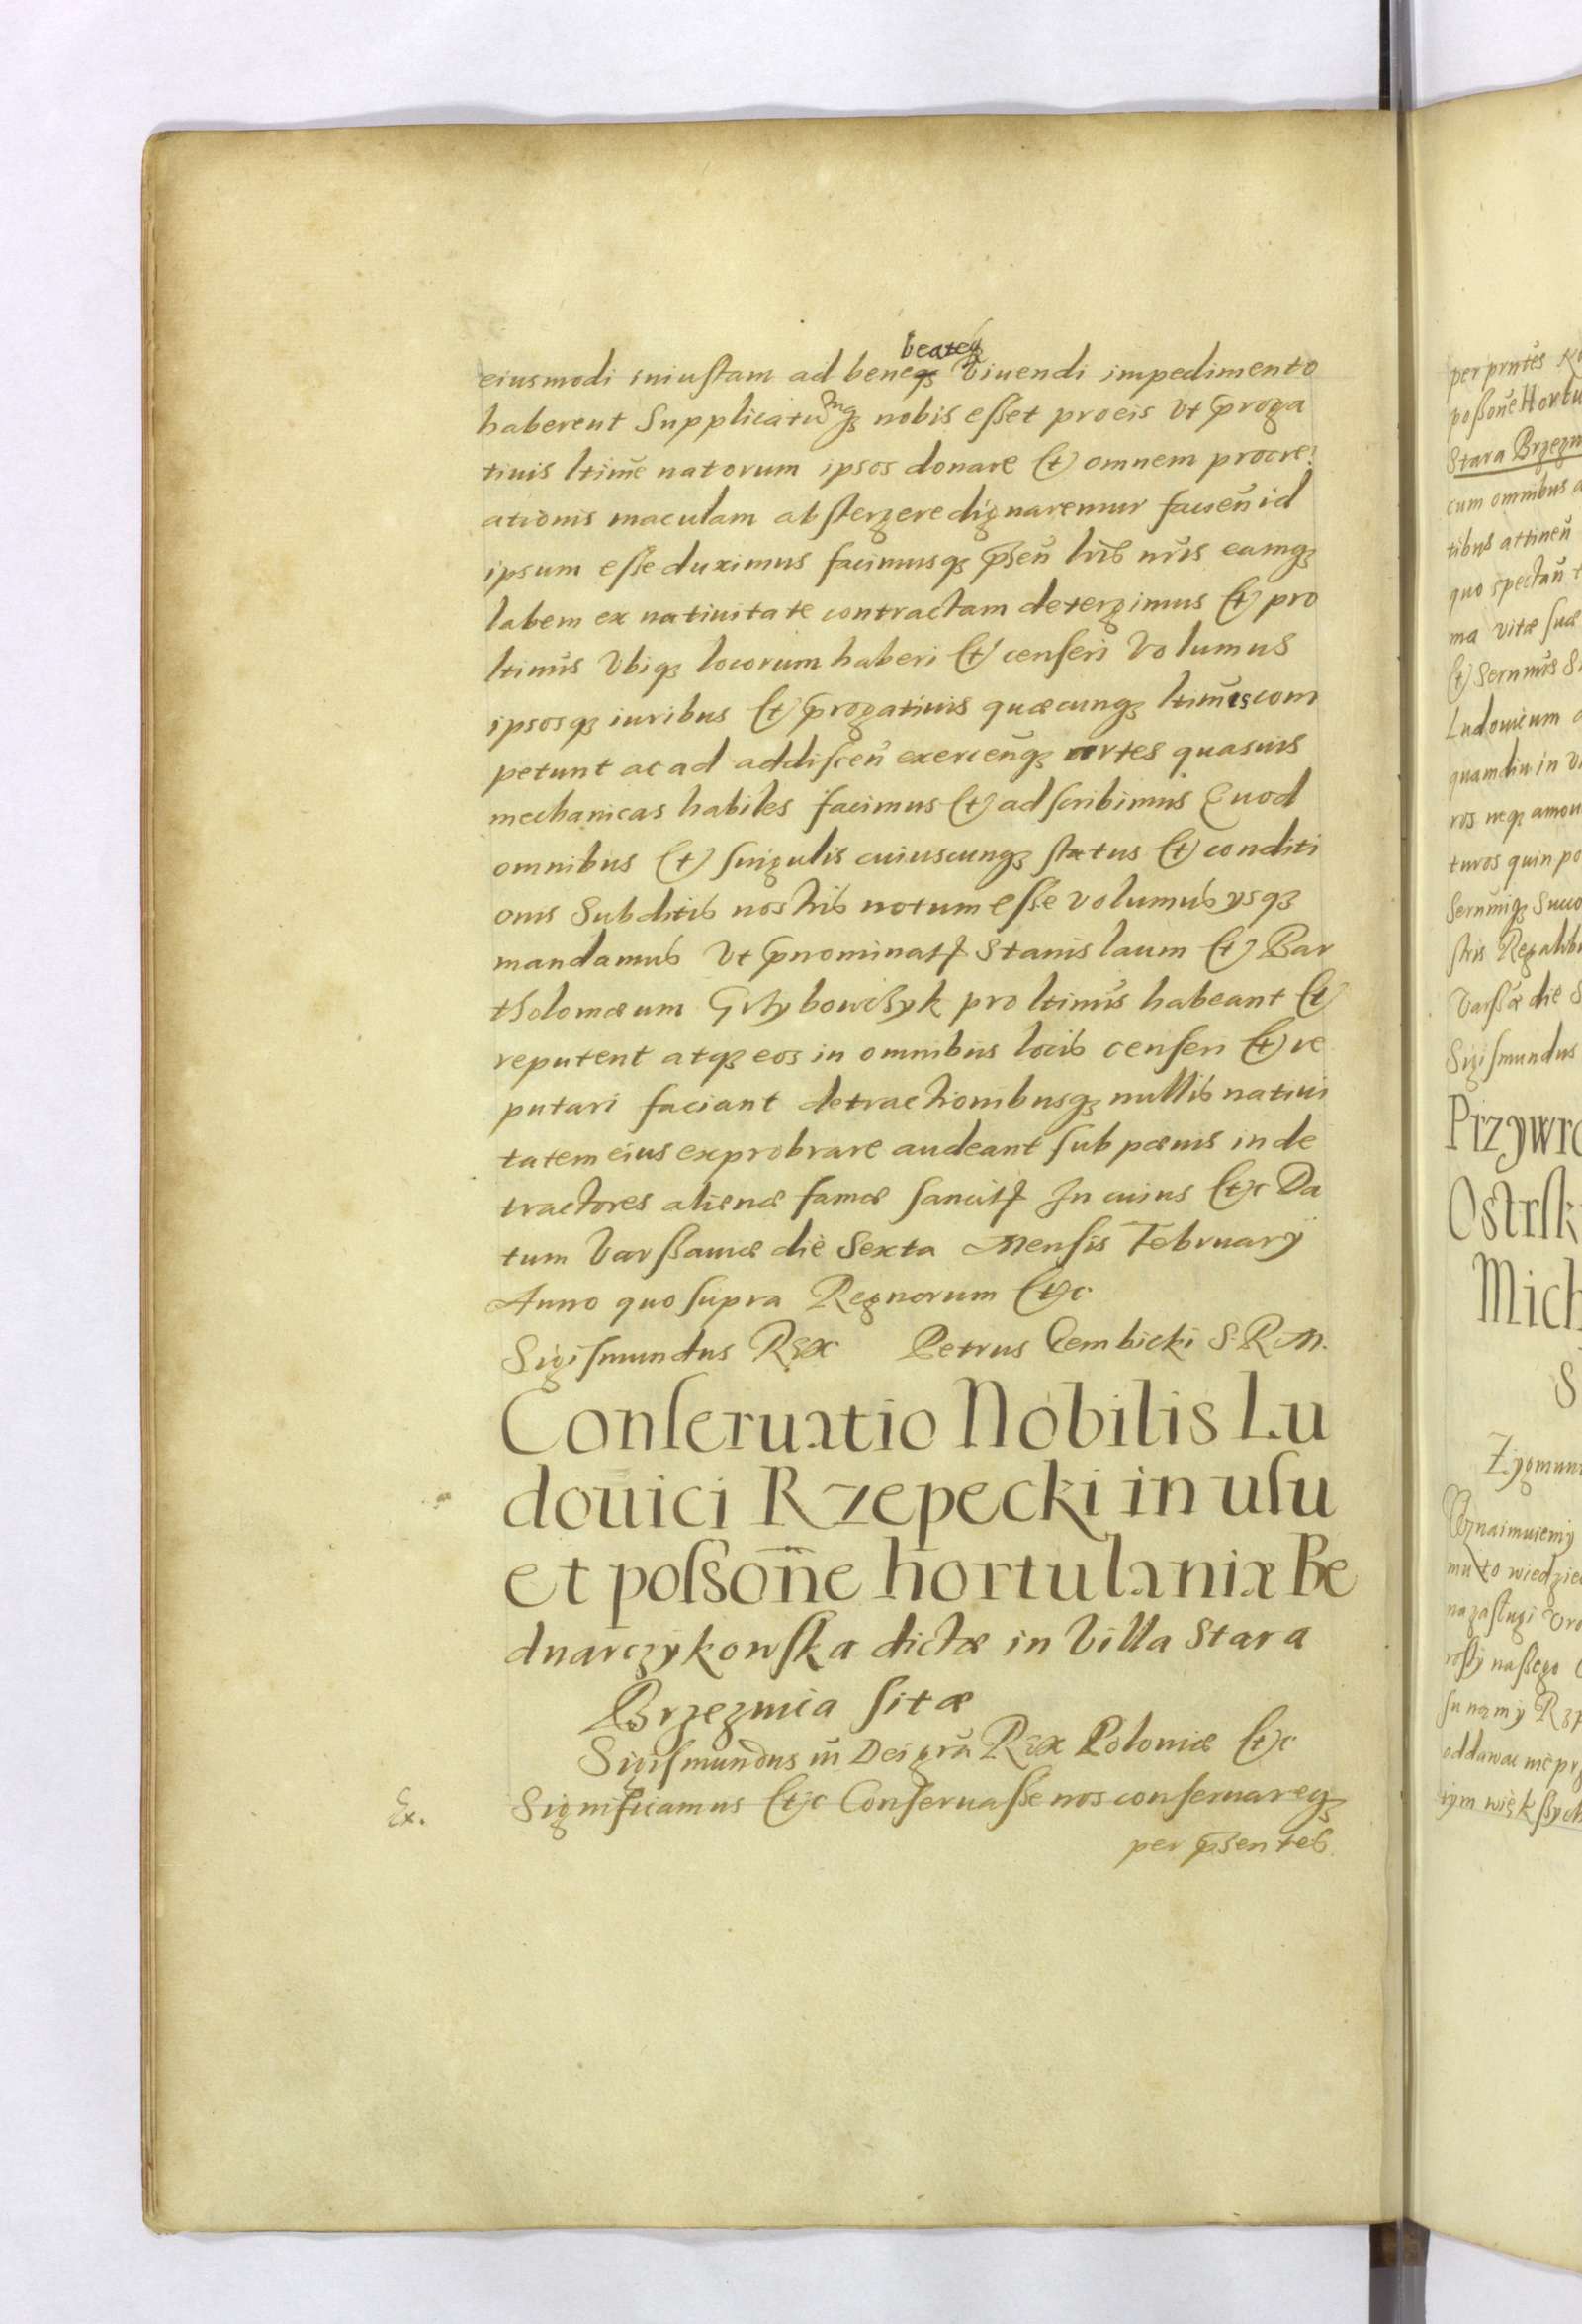 eiusmodi iniustam ad beneqȝ beateqȝ viuendi impedimento
haberent Supplicatumqȝ nobis esset pro eis vt proga
tiuis ltime natorum ipsos donare et omnem procre
ationis maculam abstergere dignaremur facien id
ipsum esse duximus facimusqȝ pñsen lris nris eamqȝ
labem ex natiuitate contractam detergimus et pro
ltimis vbiqȝ locorum haberi et censeri volumus
ipsosqȝ iuribus et progatiuis quæcunqȝ ltimis com
petunt ac ad addiscen exercenqȝ artes quasuis
mechanicas habiles facimus et adscribimus Quod
omnibus et singulis cuiuscunqȝ status et conditi
onis Subditis nostris notum esse volumus ysqȝ
mandamus vt pnominatt Stanislaum et Bar
tholomæum Grzybowczyk pro ltimis habeant et
reputent atqȝ eos in omnibus locis censeri et re
putari faciant detractionibusqȝ nullis natiui
tatem eius exprobrare audeant sub pænis in de
tractores alienæ famæ sancitt In cuius etc Da
tum Varssauiæ die Sexta Mensis February
Anno quo supra Regnorum etc
Sigismundus Rex Petrus Gembicki S. R. M.
Conseruatio Nobilis Lu
douici Rzepecki in usu
et possone hortulaniæ Be
dnarczykowska dictæ in Villa Stara
Brzeznica sitæ
Sigismundus iii Dei gra Rex Poloniæ etc
Ex. Significamus etc Conseruasse nos conseruareqȝ
per pñsentes
per prntes
possone Hortu
Stara Brzezn
cum omnibus a
tibus attinen
quo spectan
ma vitæ suæ
et Sernmis
Ludouicum
quamdiu in
ros neqȝ amou
turos quin po
Sernmiqȝ Succ
stris Regalibu
Varssæ die
Sigismundus
Przywro
Ostrsk
Mich
S
Zygmun
Oznaimuiemy
mu to wiedzie
na zasługi Vro
rosty naszego
oddawac nie prz
tym więkssych